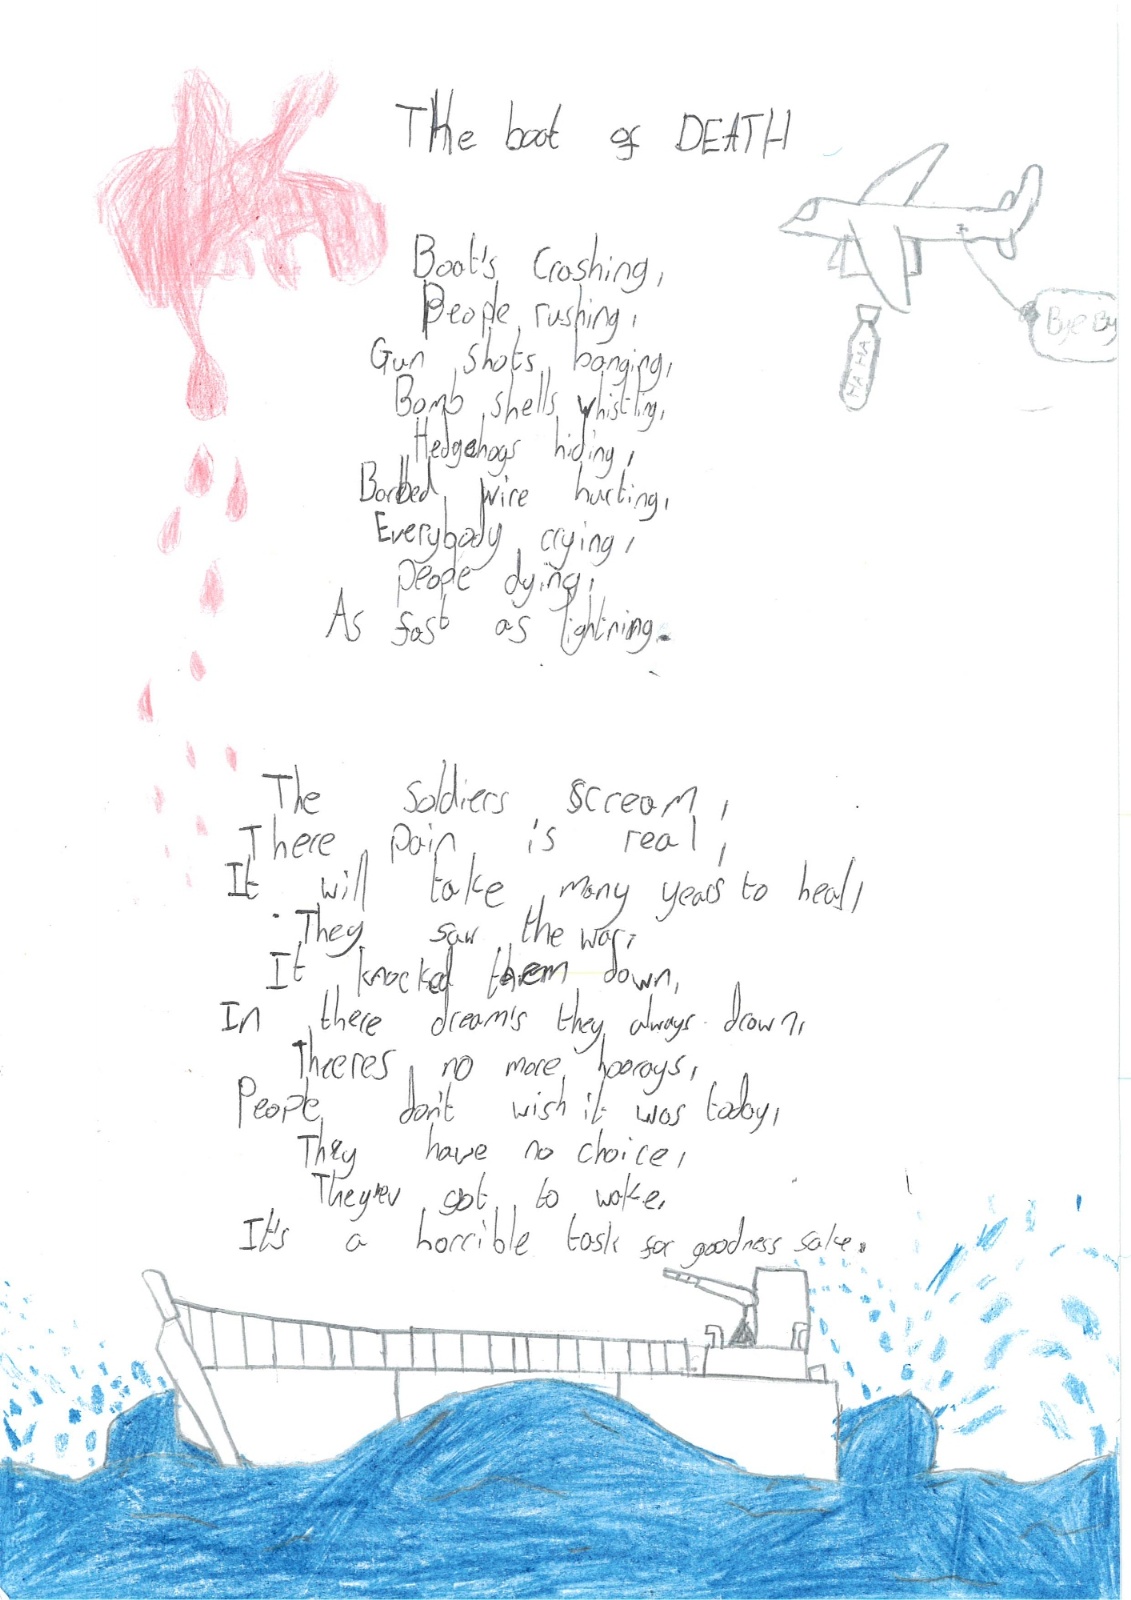 THe boat of DEATH
Boat's Crashing,
People rushing,
Gun shots banging,
Bomb shells whistling,
Hedgehogs hiding,
Barbed wire hurting,
Everybody crying,
people dying,
As fast as lightning.
The soldiers scream,
There pain is real,
It will take many years to heal,
They saw the war,
It knocked them down,
In there dream's they always drown,
Theeres no more hoorays,
People don't wish it was today,
They have no choice,
They'rev got to wake,
It's a horrible task for goodness sake.
HA HA
Bye By